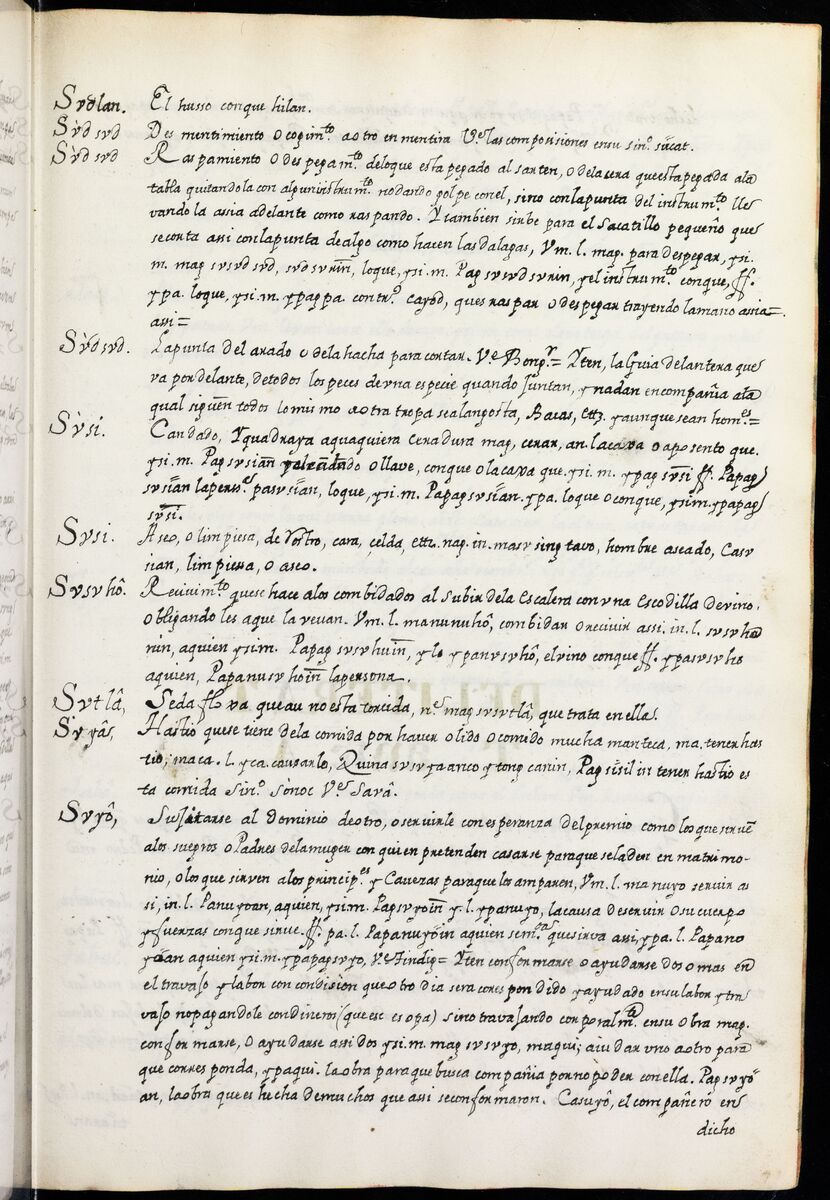 Sudlan. El husso conque hilan.
Sùd sud Des mentimiento o cogim.to a otro en mentira V.e las composiciones en su sin.o sucat.
Sùd sud Raspamiento o despega m.to deloque esta pegado al sarten, o dela cera que esta pegada ala
tabla quitandola con algun instrum.to no dando golpe con el, sino con la punta del instrum.to lle
vando la assia adelante como raspando. Y tambien sirbe para el Sacatillo pequeño que
se corta assi con la punta de algo como hacen las dalagas, Vm. l. mag. para despegar, y si.
m. mag susudsud, sudsurin, loque, y si. m. Pag susudsurin, y el instrum.to conque, ff.
y pa. loque, y si. m. y pag pa. contr.o Cayod, que es raspar o despegar trayendo la mano assia
assi=
Sùdsud. La punta del arado o dela hacha para cortar. V.e = Yten, la Guia delantera que
va por delante, de todos los peces de una especie quando Juntan, y nadan en compañia ala
qual siguen todos lo mismo a otra tropa sea langosta, Bacas, ettz. y aunque sean hom.es=
Sùsi. Candado, Y quadra y a quaquiera ceradura mag, cerar, an. la caxa o aposento que.
y si. m. Pag susian o llave, conque o la caxa que. y si. m. y pag susi ff. Papag
susian la perso.a pasusian, loque, y si. m. Papag susian. y pa. loque o conque, y si m. y papag
susi.
Susi. Aseo, o limpiesa, de Rostro, cara, çelda, ettz. nag. in. masusing tavo, hombre aseado, Casu
sian, limpiessa, o aseo.
Susuhô. Recivim.to que se hace alos combidados al subir dela Escalera con una Escodilla de vino,
obligandoles aque la bevan. Vm. l. manunuhô, combidar o recivir assi, in. l. susuho
nin, aquien y si m. Papag susuhuin, y lo y panusuhô, el vino conque ff. y pasusuho
aquien, Papanusuhoin la persona.
Sutlâ, Seda floxa que aun no esta torcida, n.e mag susutlâ, que trata en ella.
Suyâs, Hastio que se tiene dela comida por haver olido o comido mucha manteca, ma, tener has
tio, maca. l. y ca. causarlo, Quina susuyaanco ytong canin, Pag sisilin tener hastio es
ta comida Sin.o Sonoc V.e Savâ.
Suyô, Sujetarse al dominio de otro, o servirle con esperanza del premio como los que sirven
alos suegros o Padres dela muger con quien pretenden casarse para que se la den en matrimo-
nio, o los que sirven alos princip.es y Cavezas para que los amparen, Vm. l. manuyo servir as
si, in. l. Panuyoan, aquien, y si m. Pag suyoin y. l. y panuyo, la causa de servir o su cuerpo
y fuerzas conque sirve. ff. pa. l. Papanuyoin aquien se m.ta que sirva assi, y pa. l. Papanu
yoan aquien y si. m. y papag suyo, V.e = Yten conformarse o ayudarse dos o mas en
el travajo y labor con condision que otro dia sera corespondido y ayudado en su labor y tra
vajo no pagandole con dineros (que esc es opa) sino travajando corporalm.te en su obra mag.
conformarse, o ayudarse assi dos y si. m. mag susuyo, maqui; aiudar uno a otro para
que corresponda, y paqui. la obra para que busca compañia por no poder con ella. Pag suyo
an, la obra que es hecha de muchos que assi se conformaron. Casuyô, el compañero en
dicho